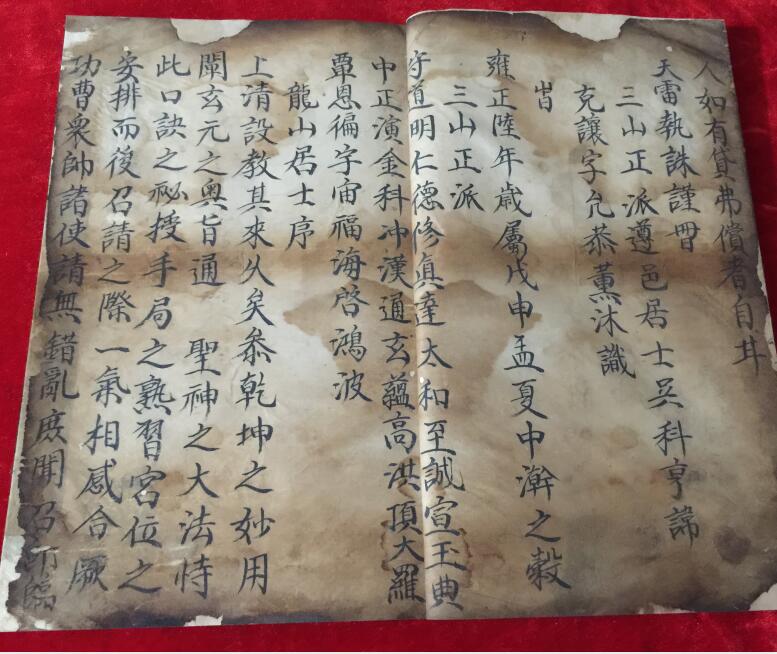 人如有貸弗償者自有
天雷執誅謹冊
三山正派遵邑居士吳科亨諦
克讓字允恭薰沐識
旹
雍正陸年歲屬戊申孟夏中澣之穀
三山正派
守道明仁德修真達太和至誠宣玉典
中正演金科冲漢通玄蘊高洪頂大羅
覃恩徧宇宙福海啓鴻波
龍山居士序
上清設教其來久矣叅乾坤之妙用
闡玄元之奧旨通 聖神之大法恃
此口訣之祕授手局之熟習宮位之
安排而後召請之際一氣相感合厥
功曹衆帥諸使請無錯亂庶開召而臨